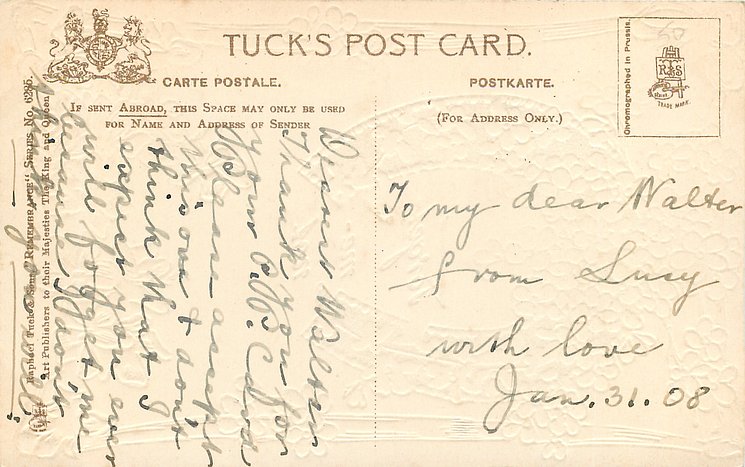 TUCK'S POST CARD.
CARTE POSTALE.
POSTKARTE.
IF SENT ABROAD, THIS SPACE MAY ONLY BE USED
FOR NAME AND ADDRESS OF SENDER
(FOR ADDRESS ONLY.)
Chromographed in Prussia.
R T S
TRADE MARK.
Raphael Tuck & Sons' "REMEMBRANCE" SERIES No. 6285.
Art Publishers to their Majesties The King and Queen
Dear Walter
Thank you for
your P.C. and
Please accept
this one & don't
think that I
expect you ever
will forget me
because I don't
To my dear Walter
from Lucy
with love
Jan. 31. 08